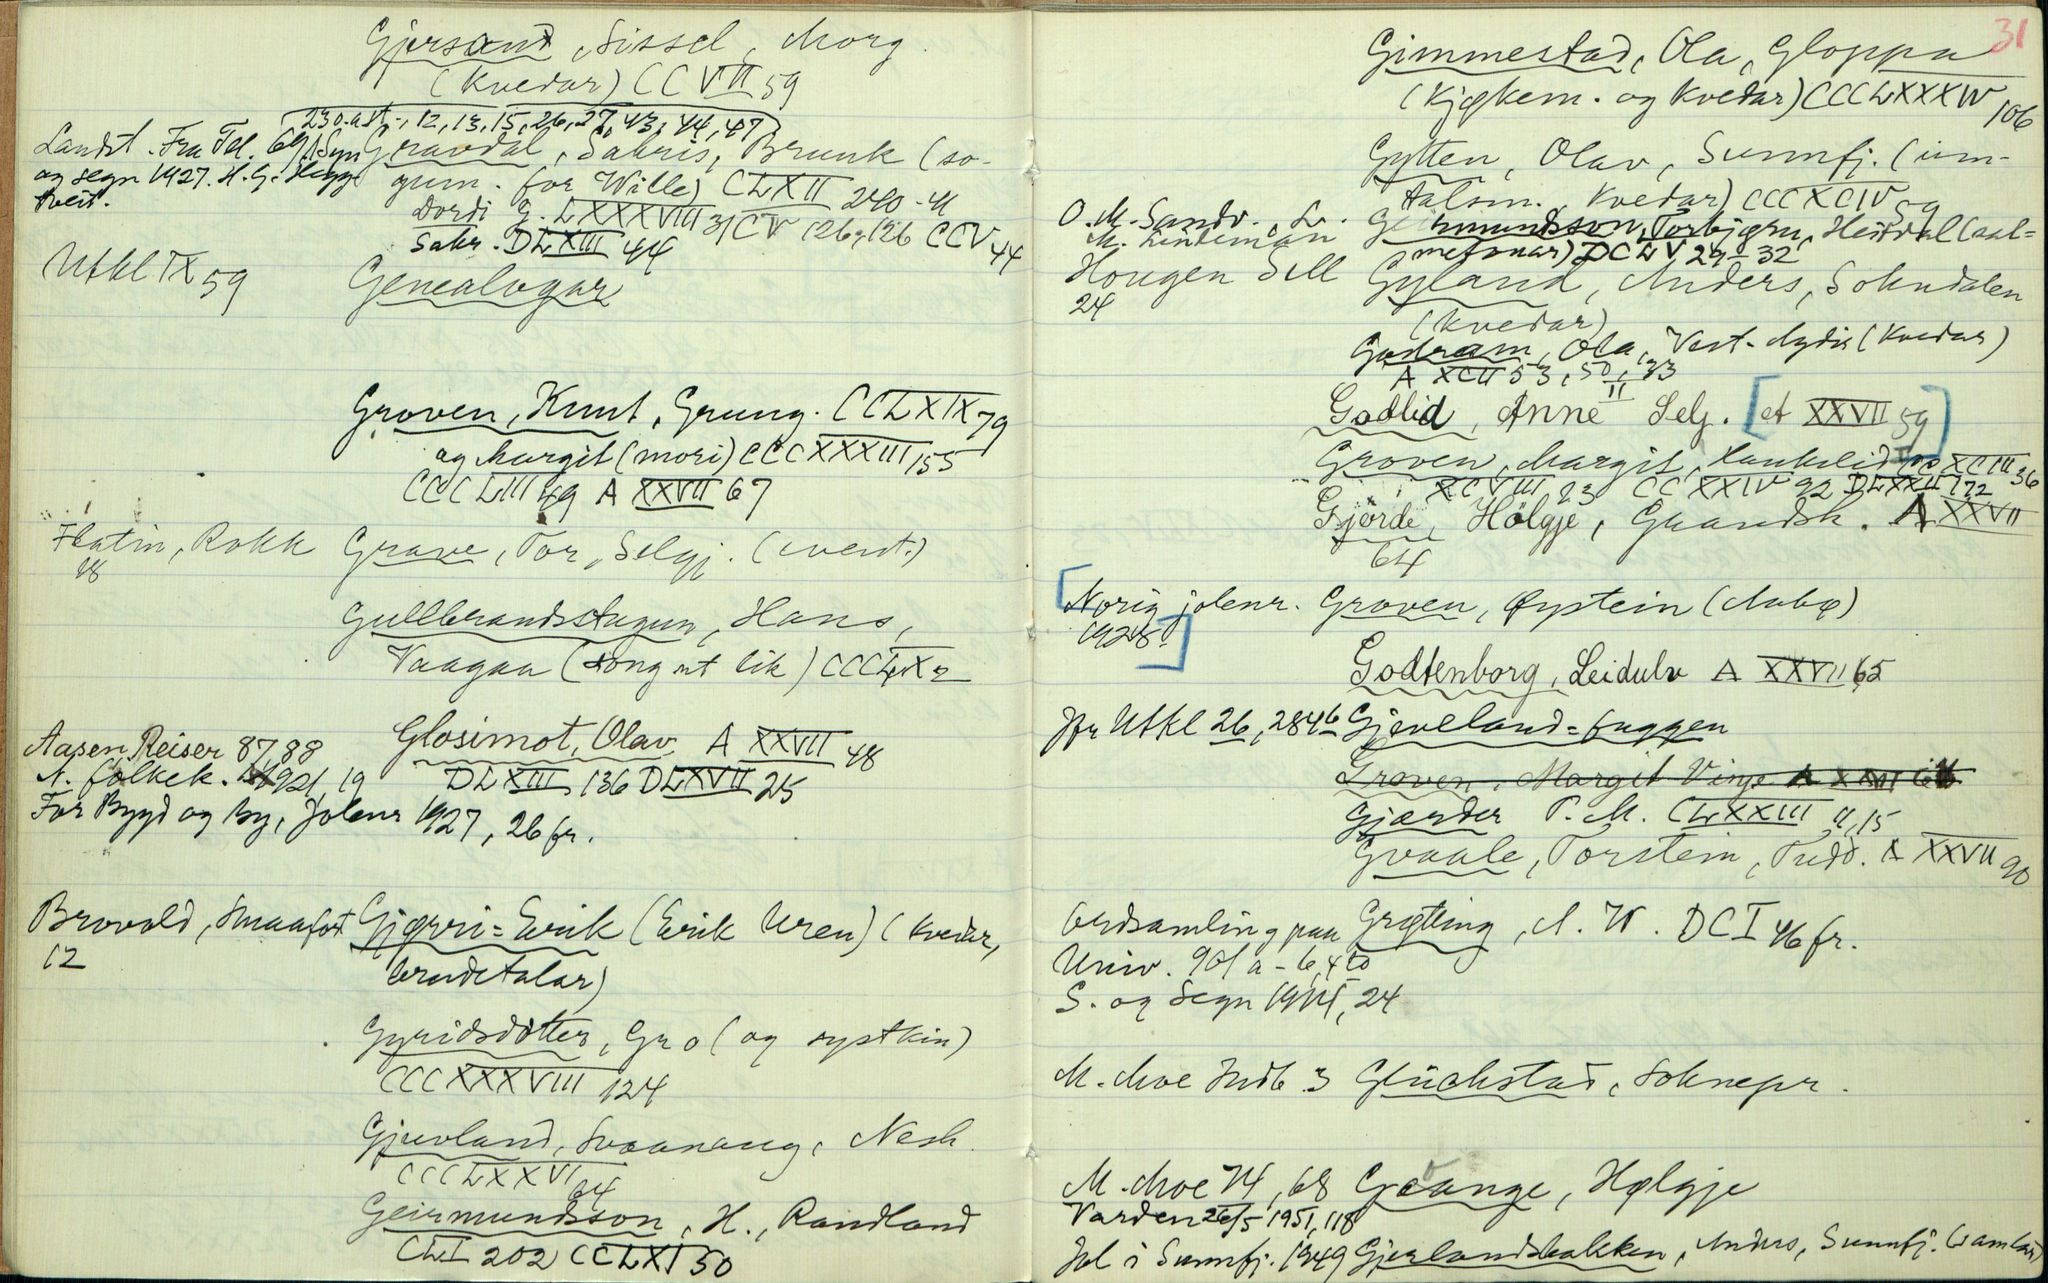 Gjersand, Sissel, Morg.
(Kvedar) CCVII 59
230.ast., 12, 13, 15, 26, 27, 43, 44, 47
Landst. Fra Tel. 69, Syn Gravdal, Sakris, Brunk (so-
og segn 1927. H. G. Hegg gum. for Wille) CLXII 240-41
tveit. Dordi G. LXXXVIII 31 CV 126, 126 CCV 44
Sakr. DLXIII 44
Utkl IX 59 Genealogar
Groven, Knut, Grung. CCLXIX 79
og Margit (mori) CCCXXXIII 155
CCCLIII 49 A XXVII 67
Flatin, Rokk Grave, Tor, Selgj. (event.)
18
Gullbrandsstugun, Hans,
Vaagaa (song ut lik) CCCLX 2
Aasen, Reiser 87, 88 Glosimot, Olav A XXVII 48
N. folkek. 1921, 19 DLXIII 136 DLXVII 25
For Bygd og By, Jolenr 1927, 26 fr.
Brovold, Smaafort Gjærri-Erik (Erik Uren) (kvedar,
12 brudetalar)
Gyridsdotter, Gro (og systkin)
CCCXXXVIII 124
Gjuvland, Svaanaug, Nesh.
CCCLXXVI 64
Geirmundsson, H., Randland
CLI 202 CCLXI 50
31
Gimmestad, Ola, Gloppa
(Kjøkem. og Kvedar) CCCLXXXIV 106
Gytten, Olav, Sunnfj. (um-
talsm. Kvedar) CCCXCIV 59
O. M. Sandv., L. mundsson, Torbjørn, Heidal (sal-
M. Lindeman metonar) DCLV 29-32
Hougen Sell Gyland, Anders, Sokndalen
24 (kvedar)
Gudram, Ola, Vest-Agder (Kvedar)
A XCII 53, 50, 33
II
Godlid, Anne Selj. [A XXVII 59]
Groven, Margit, Haukelid XCIII 36
XCVIII 23 CCXXIV 92 DLXXII 172
Gjørde, Hølgje, Graandsh. A XXVII
64
[Norig jolenr. Groven, Øystein (Aabø)
1928]
Godtenborg, Leidulv A XXVII 65
Jfr Utkl 26, 2846 Gjeveland-fuggen
Groven, Margit Vinje A XXVII 66
Gjærder P. M. CLXXIII 11, 15
Gvaale, Torstein, Tudd. A XXVII 90
Ordsamling paa Grøtting, A. W. DCI 46 fr.
Univ. 901 a-b, 4to
S. og Segn 1914, 24
M. Moe Indb. 3 Glückstad, Soknepr.
M. Moe 74, 68 Graange, Hølgje
Varden 26/5 1951, 118
Jol i Sunnfj. 1949 Gjerlandsbakken, Anders, Sunnfj. (samlar)